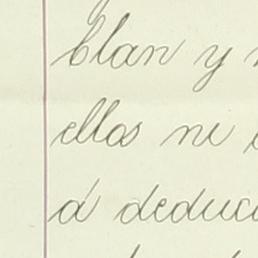 blan y
ellos ni
á deduci